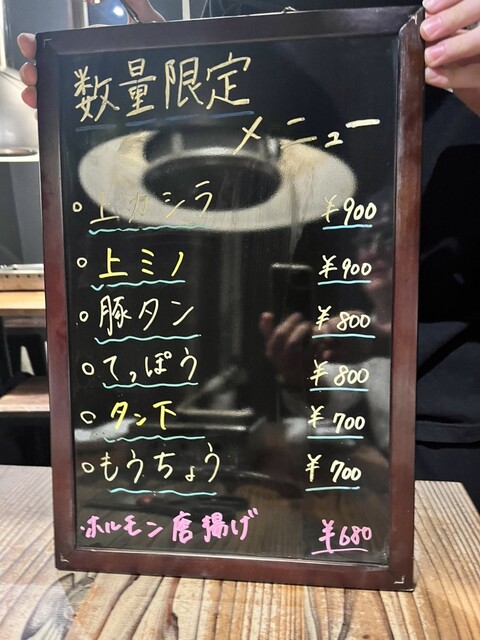 数量限定
メニュー
○上カシラ ¥900
○上ミノ ¥900
○豚タン ¥800
○てっぽう ¥800
○タン下 ¥700
○もうちょう ¥700
・ホルモン唐揚げ ¥680